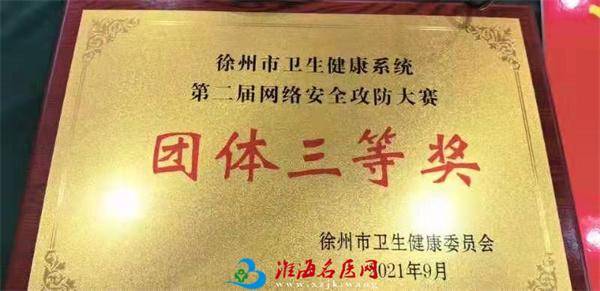 徐州市卫生健康系统
第二届网络安全攻防大赛
团体三等奖
徐州市卫生健康委员会
2021年9月
淮海名医网
www.xzjk.wang